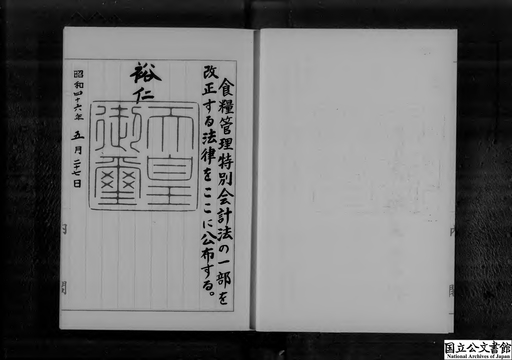 食糧管理特別会計法の一部を
改正する法律をここに公布する。
裕仁
天皇御璽
昭和四十六年五月二十七日
内閣
内閣
国立公文書館
National Archives of Japan